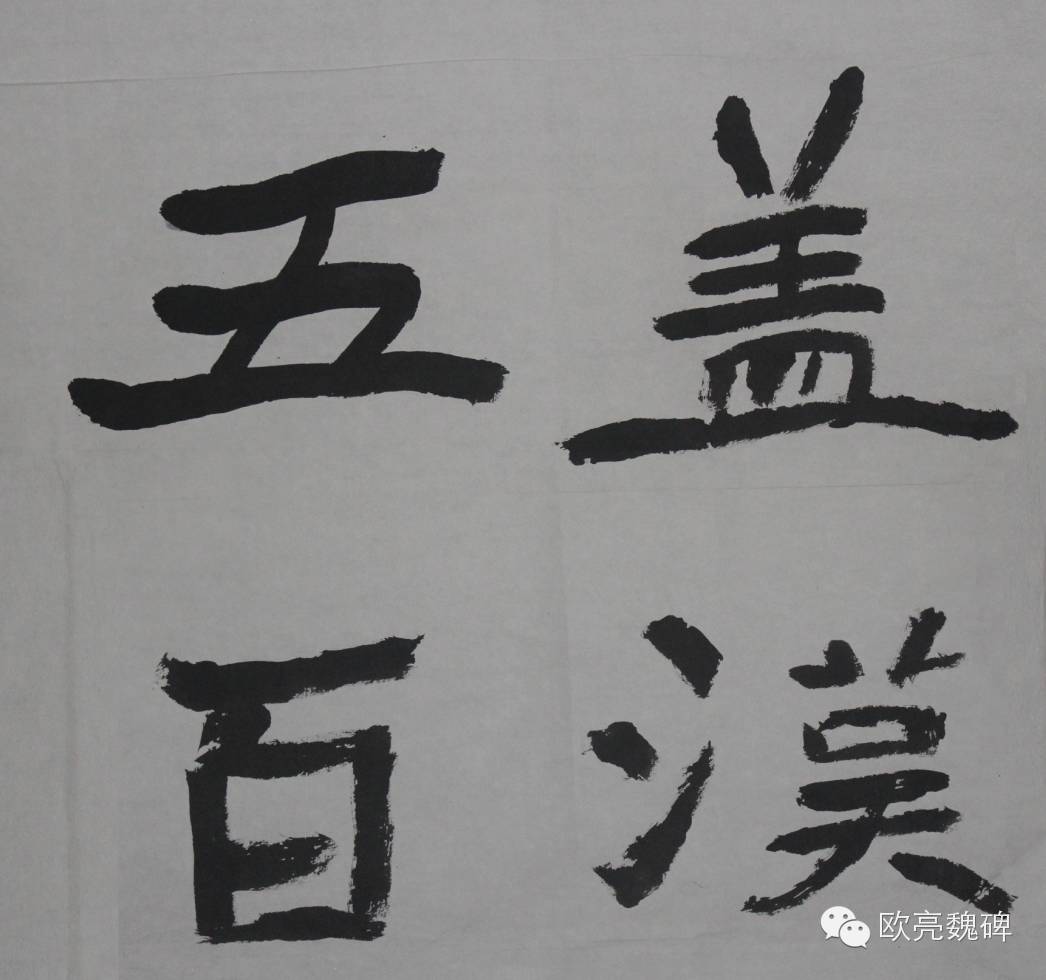 盖漢
五百
欧亮魏碑